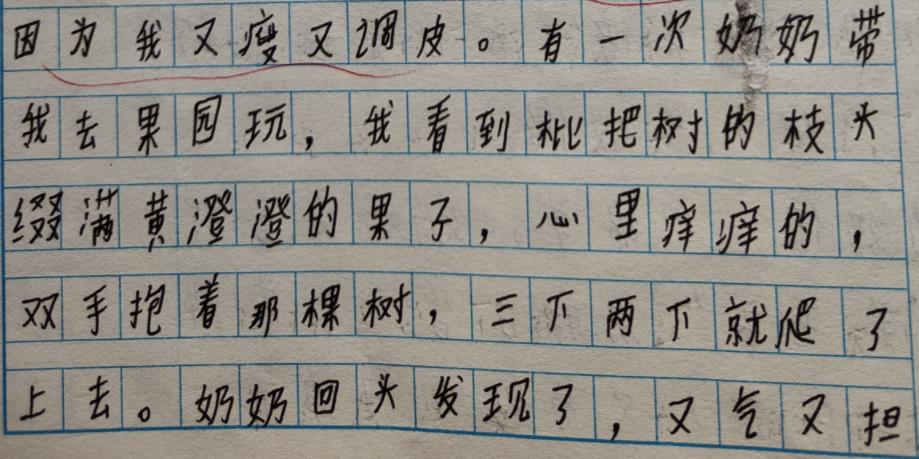 因为我又瘦又调皮。有一次奶奶带
我去果园玩，我看到枇把树的枝头
缀满黄澄澄的果子，心里痒痒的，
双手抱着那棵树，三下两下就爬了
上去。奶奶回头发现了，又气又担